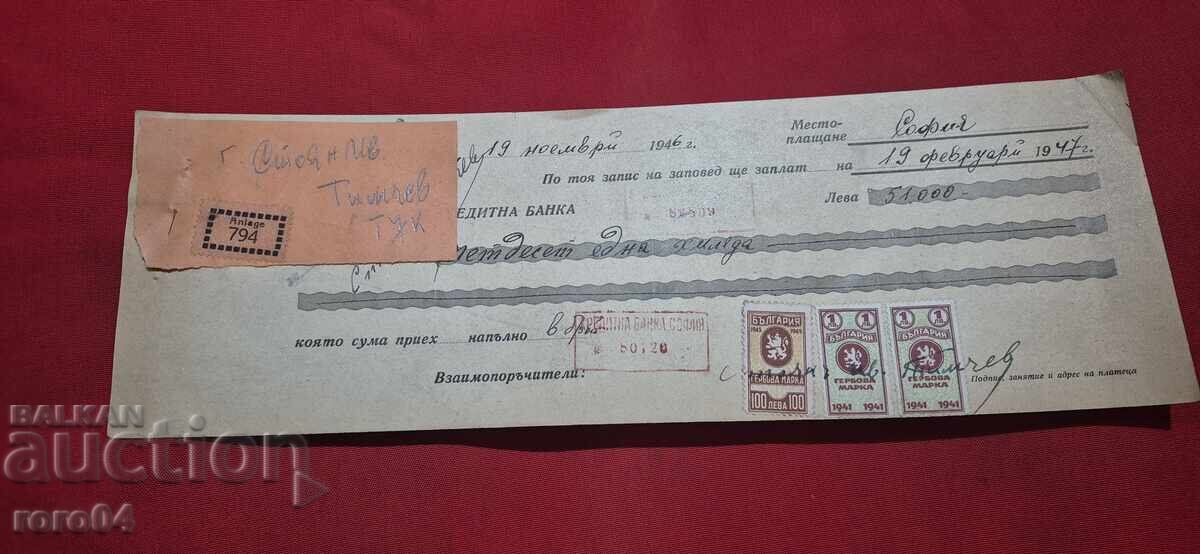 г Стоян Ив.
Тилчев
Тук
Anlage
794
19 ноември 1946 г.
Место-
плащане София
По тоя запис на заповед ще заплат на 19 февруари 1947 г.
ЕДИТНА БАНКА
Лева 51.000-
петдесет една хиляда
която сума приех напълно в
РЕДИТНА БАНКА СОФИЯ
50120
Взаимопоръчители:
БЪЛГАРИЯ
1945 1945
ГЕРБОВА МАРКА
100 ЛЕВА 100
1 ЛВ. 1 ЛВ.
БЪЛГАРИЯ
ГЕРБОВА
МАРКА
1941 1941
1 ЛВ. 1 ЛВ.
БЪЛГАРИЯ
ГЕРБОВА
МАРКА
1941 1941
Стоян Ив. Тилчев
Подпис, занятие и адрес на платеца
BALKAN
auction
roro04